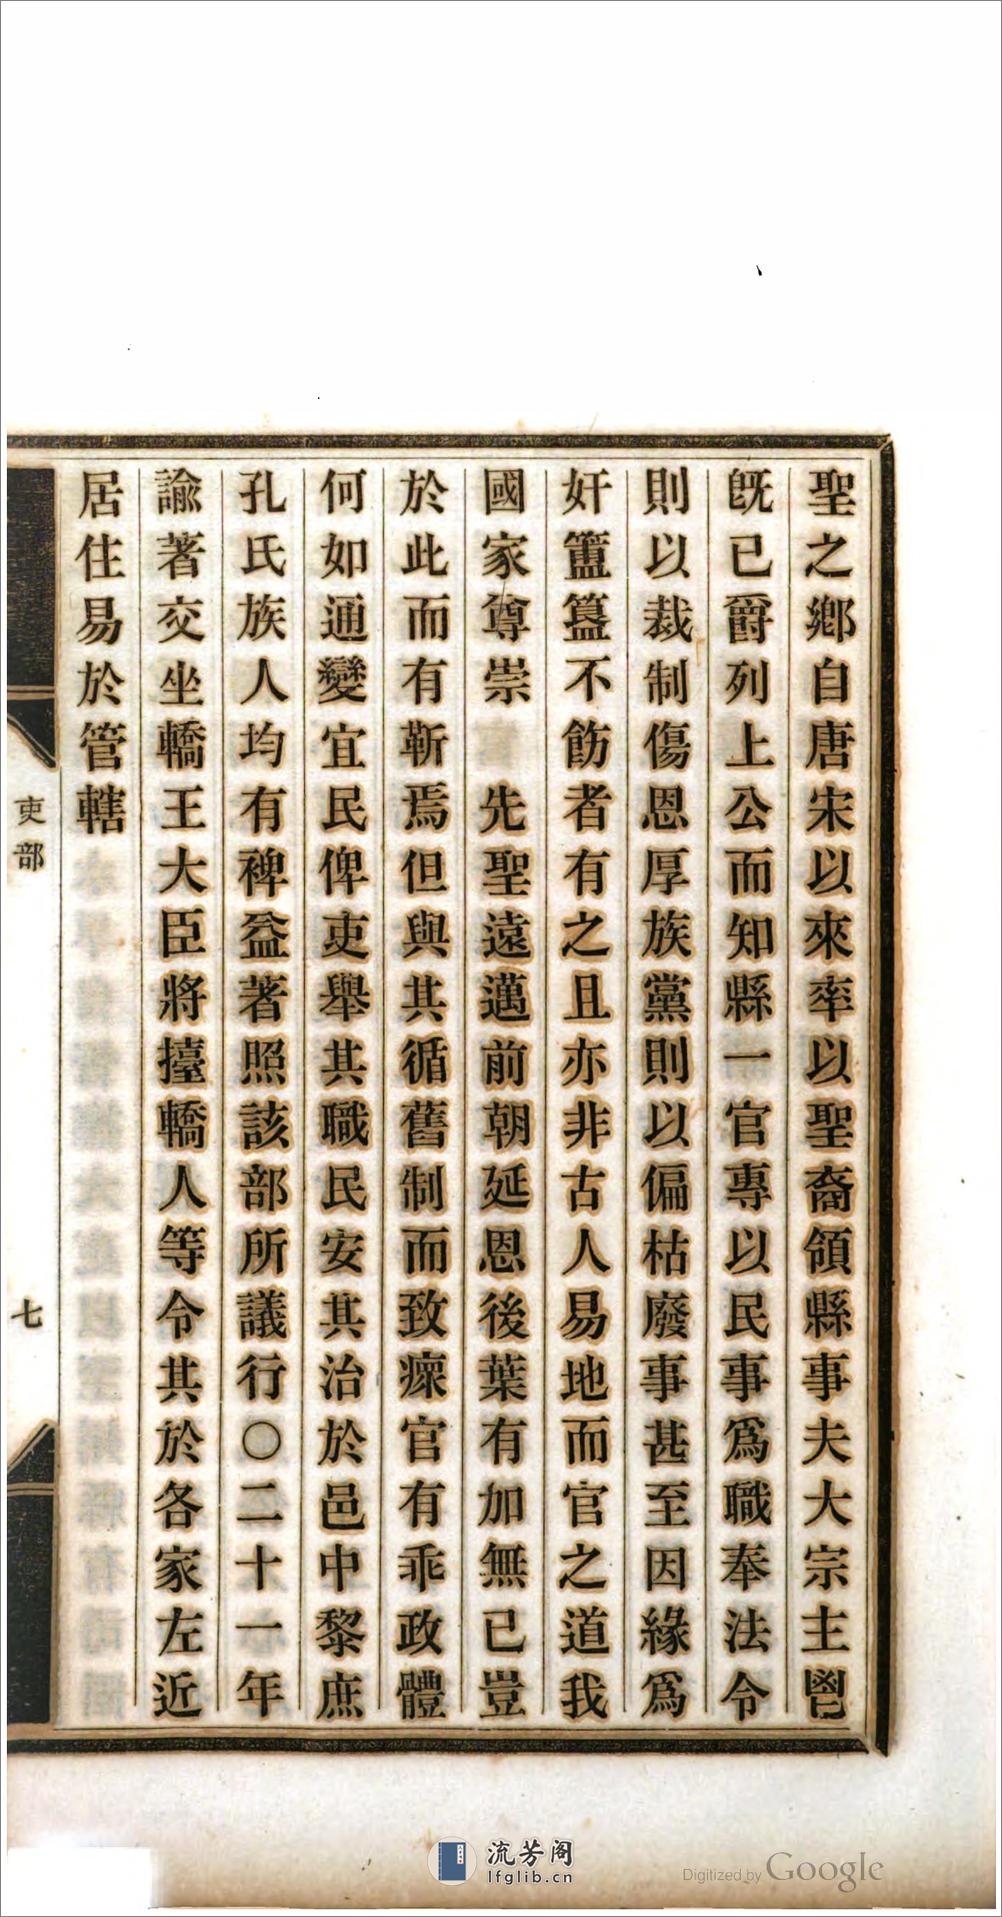 聖之鄉自唐宋以來率以聖裔領縣事夫大宗主鬯
旣已爵列上公而知縣一官專以民事爲職奉法令
則以裁制傷恩厚族黨則以偏枯廢事甚至因緣爲
奸簠簋不飭者有之且亦非古人易地而官之道我
國家尊崇　先聖遠邁前朝延恩後葉有加無已豈
於此而有靳焉但與其循舊制而致瘝官有乖政體
何如通變宜民俾吏舉其職民安其治於邑中黎庶
孔氏族人均有裨益著照該部所議行○二十一年
諭著交坐轎王大臣將擡轎人等令其於各家左近
居住易於管轄
吏部
七
流芳阁
lfglib.cn
Digitized by Google